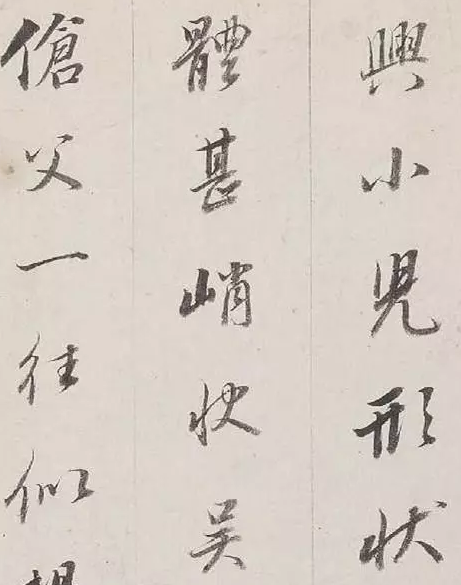 興小兒形状
體甚峭快吴
傖父一往似